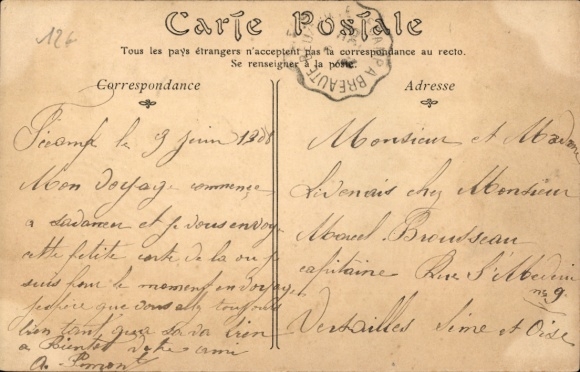 126
Carte Postale
Tous les pays étrangers n'acceptent pas la correspondance au recto.
Se renseigner à la poste.
A BREAUTE
Correspondance
Adresse
Fécamp le 9 juin 1908
Mon voyage commence
a savancer et je vous envoy
cette petite carte de la ou je
suis pour le moment en voyage
jespère que vous alez toujours
bien tant qua sa va bien
a Bientot votre ami
A.
Monsieur et Madame
Lidonais chez Monsieur
Marcel Brousseau
capitaine Rue St Mederic
no 9
Versailles Seine et Oise